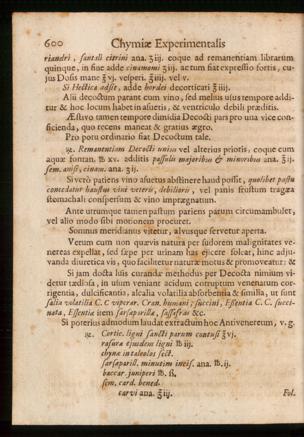 600 Chymiæ Experimentalis
riandri, santali citrini ana. ʒiij. coque ad remanentiam librarum
quinque, in fine adde cinamomi ʒiij. ac tum fiat expressio fortis, cu-
jus Dosis mane ℥vj. vesperi. ℥iiij. vel v.
Si Hectica adsit, adde hordei decorticati ℥iiij.
Alii decoctum parant cum vino, sed melius usus tempore addi-
tur & hoc locum habet in asuetis, & ventriculo debili præditis.
Æstivo tamen tempore dimidia Decocti pars pro una vice con-
ficienda, quo recens maneat & gratius ægro.
Pro potu ordinario fiat Decoctum tale.
℞. Remanentiam Decocti unius vel alterius prioris, coque cum
aquæ fontan. ℔ xv. additis passulis majoribus & minoribus ana. ℥ij.
sem. anisi, cinam. ana. ʒij.
Si verò patiens vino asuetus abstinere haud possit, quolibet pastu
comedatur haustus vini veteris, debilioris, vel panis frustum tragæa
stomachali conspersum & vino imprægnatum.
Ante utrumque tamen pastum patiens parum circumambulet,
vel alio modo sibi motionem procuret.
Somnus meridianus vitetur, alvusque servetur aperta.
Verum cum non quævis natura per sudorem malignitates ve-
nereas expellat, sed sæpe per urinam has ejicere soleat, hinc adju-
vanda diuretica vis, quo facilitetur naturæ motus & promoveatur: &
Si jam docta luis curandæ methodus per Decocta nimium vi-
detur tædiosa, in usum veniant acidum corruptum venenatum cor-
rigentia, dulcificantia, alcalia volatilia absorbentia & similia, ut sunt
salia volatilia C. C viperar. Cran. humani; succini, Essentia C.C. succi-
nata, Essentia item sarsaparilla, sassafras &c.
Si poterius admodum laudat extractum hoc Antivenereum, v. g.
℞. Cortic. ligni sancti parum contusi ℥vj.
rasura ejusdem ligni ℔ iij.
chynæ in taleolas sect.
sarsaparill. minutim incis. ana. ℔ij.
baccar. juniperi ℔. ß.
sem. card. bened.
carvi ana. ℥iij.
Fol.